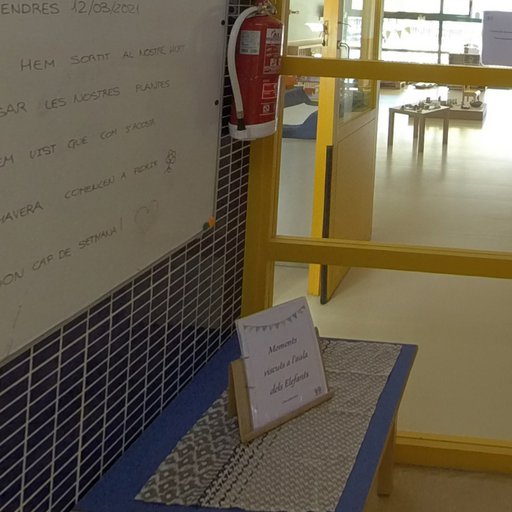 ENDRES 12/03/2021
HEM SORTIT AL NOSTRE HORT
GAR LES NOSTRES PLANTES
EM VIST QUE COM S'ACOSTA
MAVERA COMENCEN A FLORIR
BON CAP DE SETMANA!
Moments
viscuts a l'aula
dels Elefants